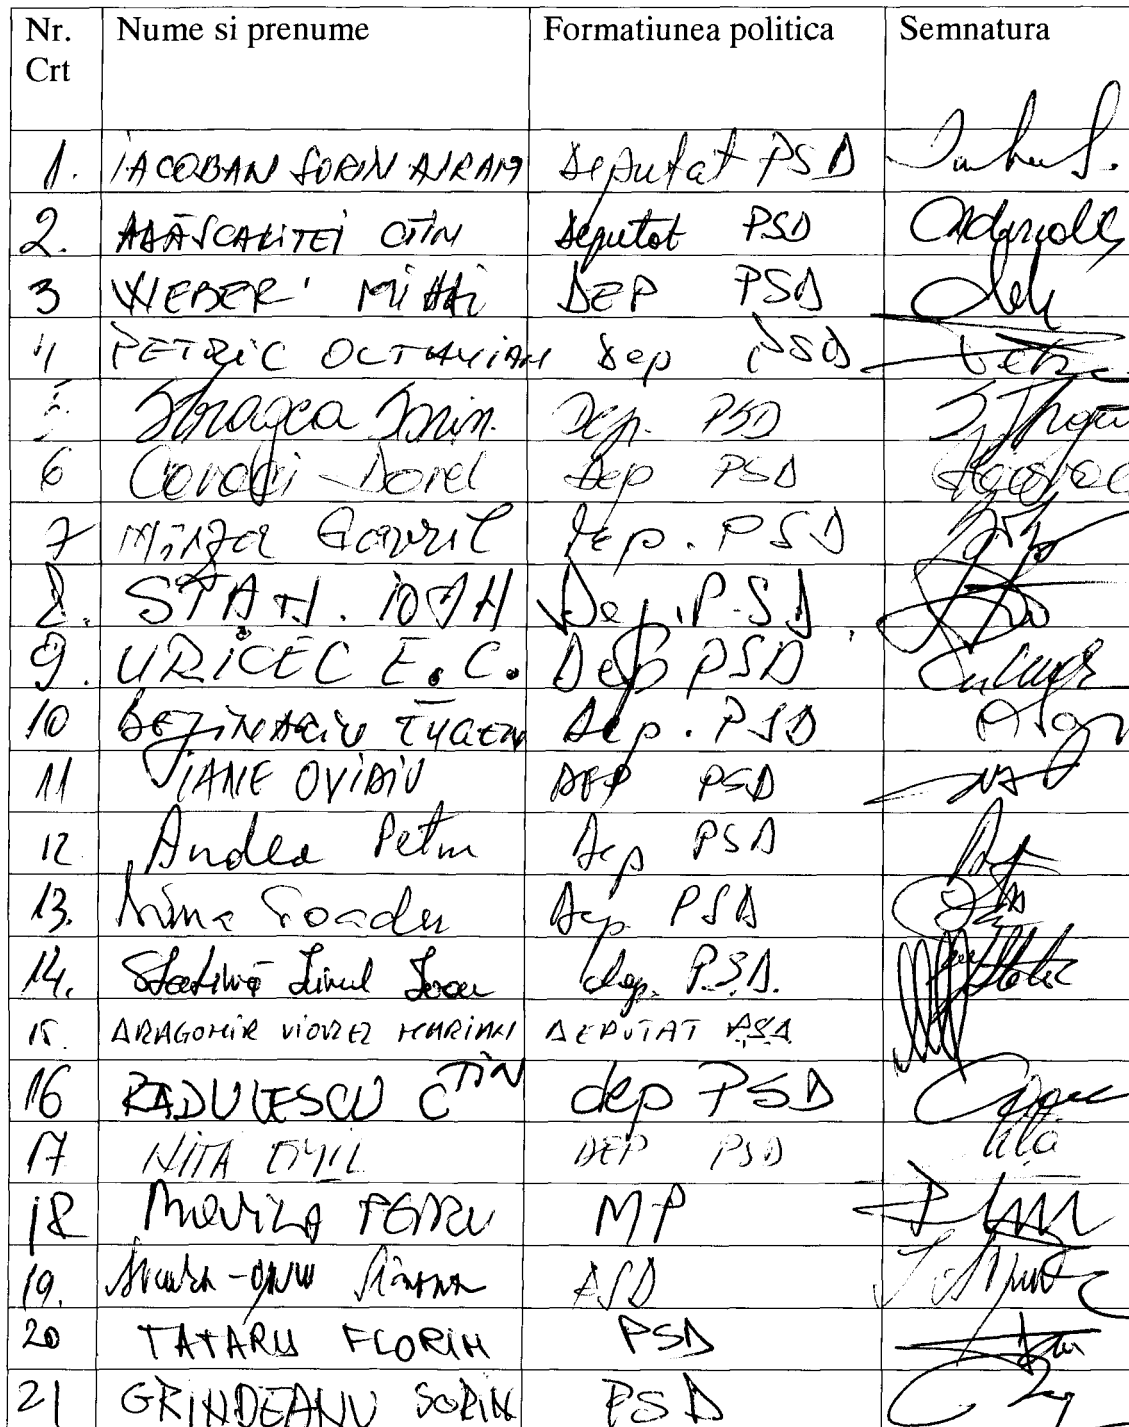 Nr. Crt Nume si prenume Formatiunea politica Semnatura
1. IACOBAN SORIN AVRAM Deputat PSD
2. ADĂSCĂLIȚEI CTIN Deputat PSD
3 WEBER MIHAI DEP PSD
4 PETRIC OCTAVIAN Dep PSD
5. Stragea Sorin. Dep. PSD
6 Covaci Dorel Dep PSD
7 Mîrza Gavril Dep. PSD
8. STAN. IOAN Dep. PSD
9. URICEC E.C. Dep PSD
10 BEJINARIU EUGEN Dep. PSD
11 IANE OVIDIU DEP PSD
12 Andea Petru Dep PSD
13. Toader Dep PSD
14. Ioan dep. P.S.D.
15. DRAGOMIR VIOREL MARIAN DEPUTAT PSD
16 RADULESCU CTIN dep PSD
17 NITA EMIL DEP PSD
18 MOVILA PETRU MP
19. PSD
20 TATARU FLORIN PSD
21 GRINDEANU SORIN PSD